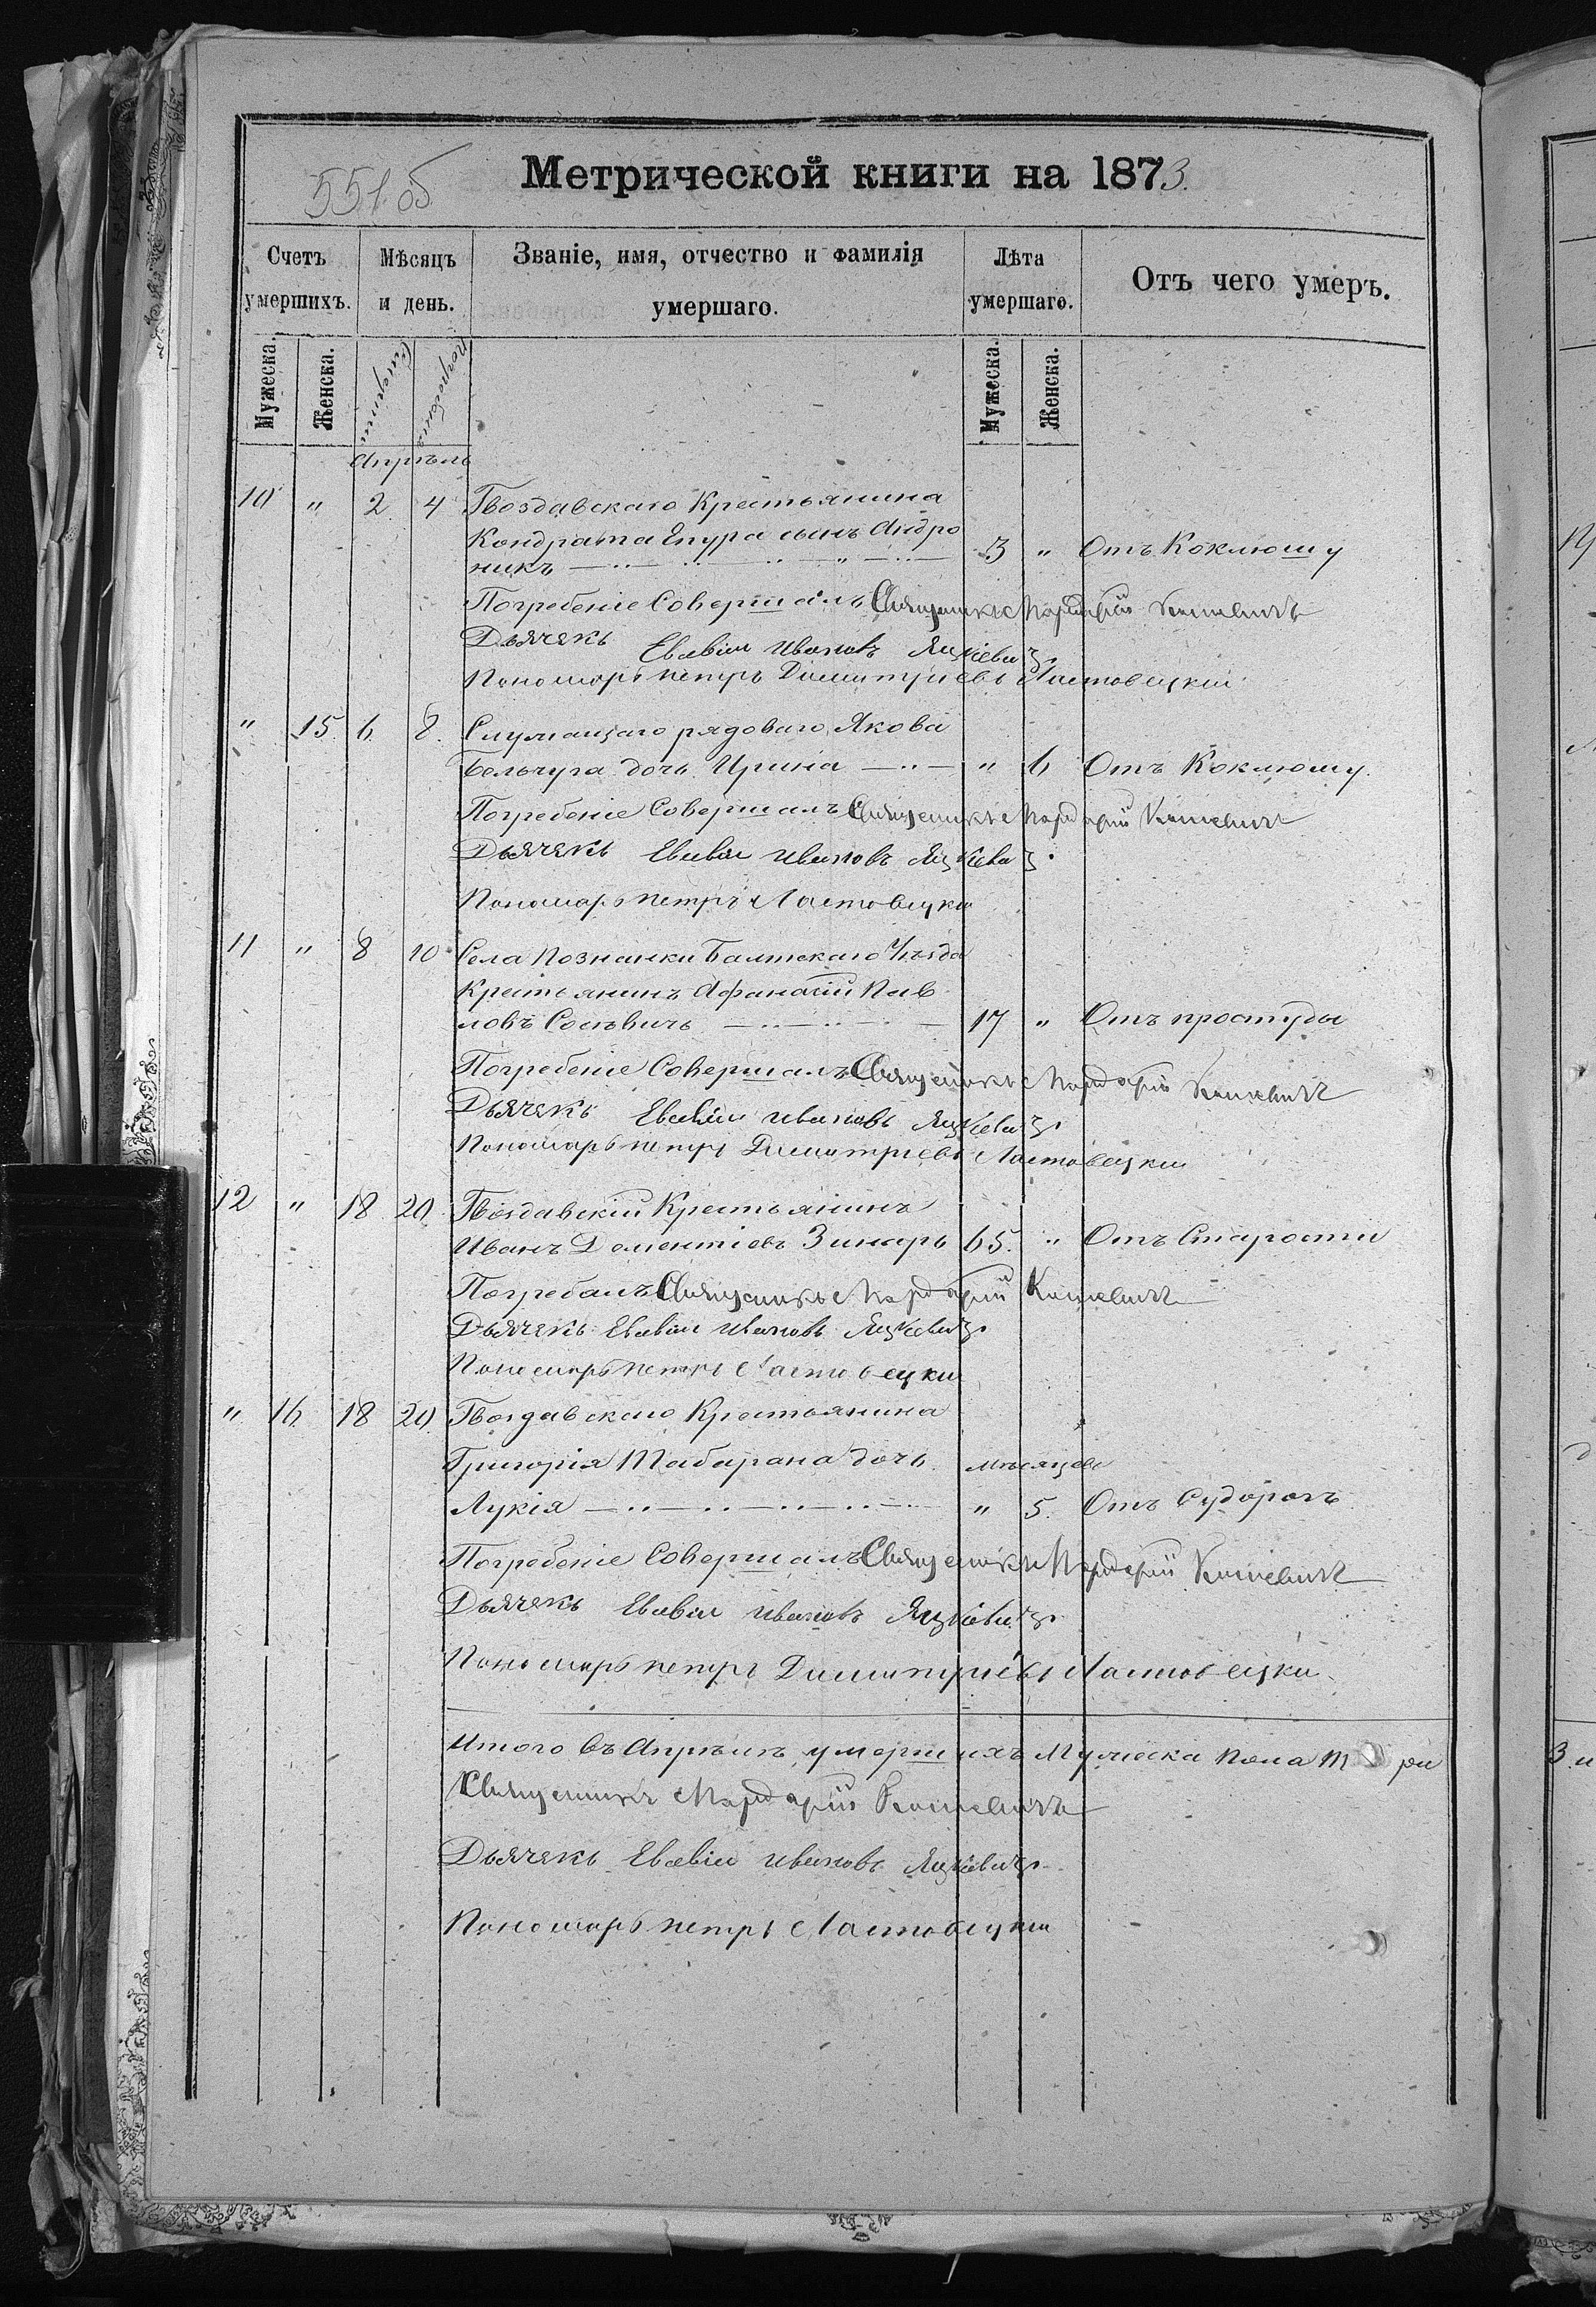 551 об
Метрической книги на 1873.
Счетъ умершихъ.
Мѣсяцъ и день.
Званіе, имя, отчество и фамилія умершаго.
Лѣта умершаго.
Отъ чего умеръ.
Мужеска. Женска. Смерти Погребенія Мужеска. Женска.
Апрѣль
10 " 2 4 Гвоздавскаго Крестьянина
Кондрата Епура сынъ Андро
никъ 3 " Отъ Коклюшу
Погребеніе Совершалъ Священникъ Мардарій
Дьячекъ Ивановъ Яцкевич
Пономарь петръ Димитріевъ Ластовецкій
" 15 6 8. Служащаго рядоваго Якова
Бельчуга дочь Ирина " 6 Отъ Коклюшу.
Погребеніе Совершалъ Священникъ Мардарій
Дьячекъ Ивановъ Яцкевич.
Пономарь петръ Ластовецки
11 " 8 10 Села Познанки Балтскаго Уѣзда
Крестьянинъ Афанасій Пав
ловъ 17 " Отъ простуды
Погребеніе Совершалъ Священникъ Мардарій
Дьячекъ Ивановъ Яцкевич.
Пономарь петръ Димитріевъ Ластовецки
12 " 18 20 Гвоздавскій Крестьянинъ
Иванъ Дементіевъ Зинарь 65. " Отъ Старости
Погребалъ Священникъ Мардарій
Дьячекъ Ивановъ Яцкевич.
Пономарь петръ Ластовецки
" 16 18 20 Гвоздавскаго Крестьянина
Григорія Табарана дочь мѣсяцев
Лукія " 5. Отъ Судорогъ
Погребеніе Совершалъ Священникъ Мардарій
Дьячекъ Ивановъ Яцкевич.
Пономарь петръ Димитріевъ Ластовецки
Итого въ Апрѣлѣ умершихъ Мужеска пола три
Священникъ Мардарій
Дьячекъ Ивановъ Яцкевич.
Пономарь петръ Ластовецки